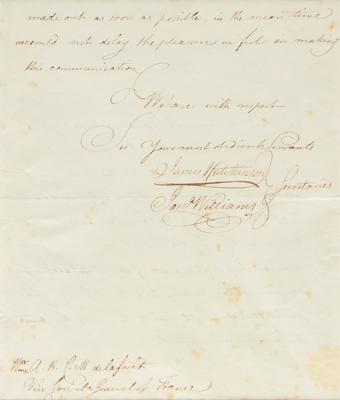 made out as soon as possible, in the mean time
we could not delay the pleasure we feel in making
this communication
We are with respect
Sir Your most obedient Servants
James Hutchinson
Jonᵃ Williams
Secretaries
A. R. C. M delaforêt
Vice Consul General of France